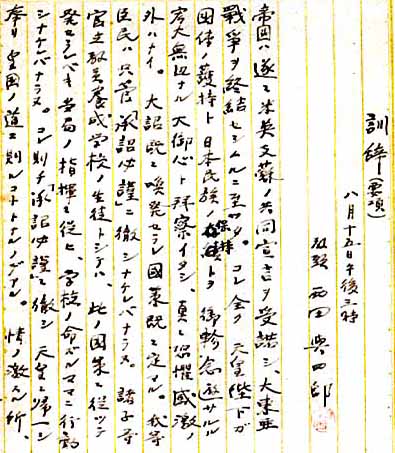 訓辞(要項)
八月十五日午後三時
校長 西田與四郎
帝國ハ遂ニ米英支蘇ノ共同宣言ヲ受諾シ、大東亜
戰爭ヲ終結セシムルニ至ツタ。コレ全ク 天皇陛下ガ
国体ノ護持ト日本民族ノ保持トヲ御軫念遊サルル
宏大無辺ナル大御心ト拝察イタシ、真ニ恐懼感激ノ
外ハナイ。大詔既ニ喚発セラレ國策既ニ定マル。我等
臣民ハ只管「承詔必謹」ニ徹シナケレバナラヌ。諸子ハ
官立教員養成学校ノ生徒トシテハ、此ノ國策ニ從ツテ
発セラルベキ当局ノ指揮ニ從ヒ、学校ノ命ズルママニ行動
シナケレバナラヌ。コレ則チ「承詔必謹」ニ徹シ 天皇ニ帰一シ
奉リ皇國ノ道ニ則ルコトトナルノデアル。情ノ激スル所、